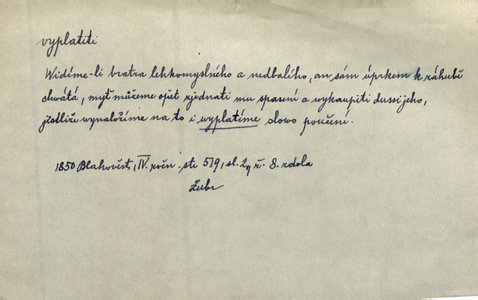 vyplatiti
Widíme-li bratra lehkomyslného a nedbalého, an sám úprkem k záhubě
chwátá, myť můžeme opět zjednati mu spasení a wykaupiti dussi jeho,
jestliže wynaložíme na to i wyplatíme slowo poučení.
1850 Blahověst, IV. ročn. str. 519, sl. 2, ř. 8. zdola